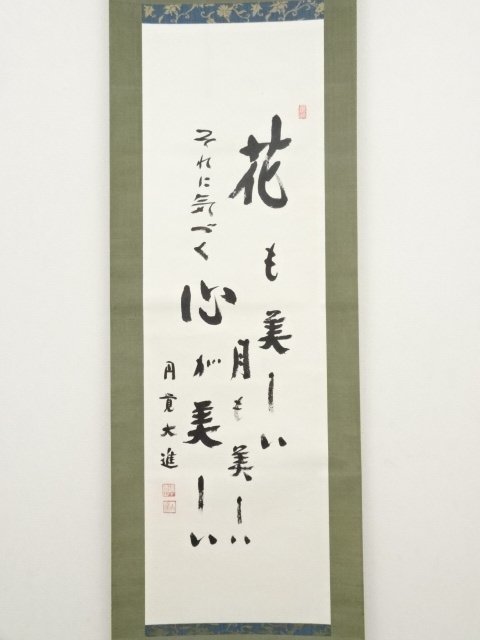 花も美しい
月も美しい
それに気づく
心が美しい
円覚大進